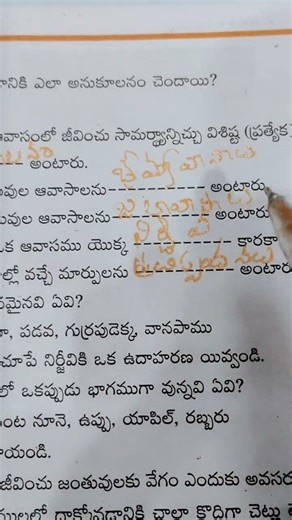 ానికి ఎలా అనుకూలనం చెందాయి?
ఆవాసంలో జీవించు సామర్థ్యాన్నిచ్చు విశిష్ట (ప్రత్యేక)
అంటారు.
వుల ఆవాసాలను అంటారు.
వుల ఆవాసాలను అంటారు
క ఆవాసము యొక్క నిర్జీవ కారకా
ల్లో వచ్చే మార్పులను అంటార
నమైనవి ఏవి?
ా, పడవ, గుర్రపుడెక్క వానపాము
చూపే నిర్జీవికి ఒక ఉదాహరణ యివ్వండి.
లో ఒకప్పుడు భాగముగా వున్నవి ఏవి?
ంట నూనె, ఉప్పు, యాపిల్, రబ్బరు
ాయండి.
జీవించు జంతువులకు వేగం ఎందుకు అవసర
ములలో దాక్కోవడానికి చాలా కొద్దిగా చెట్లు